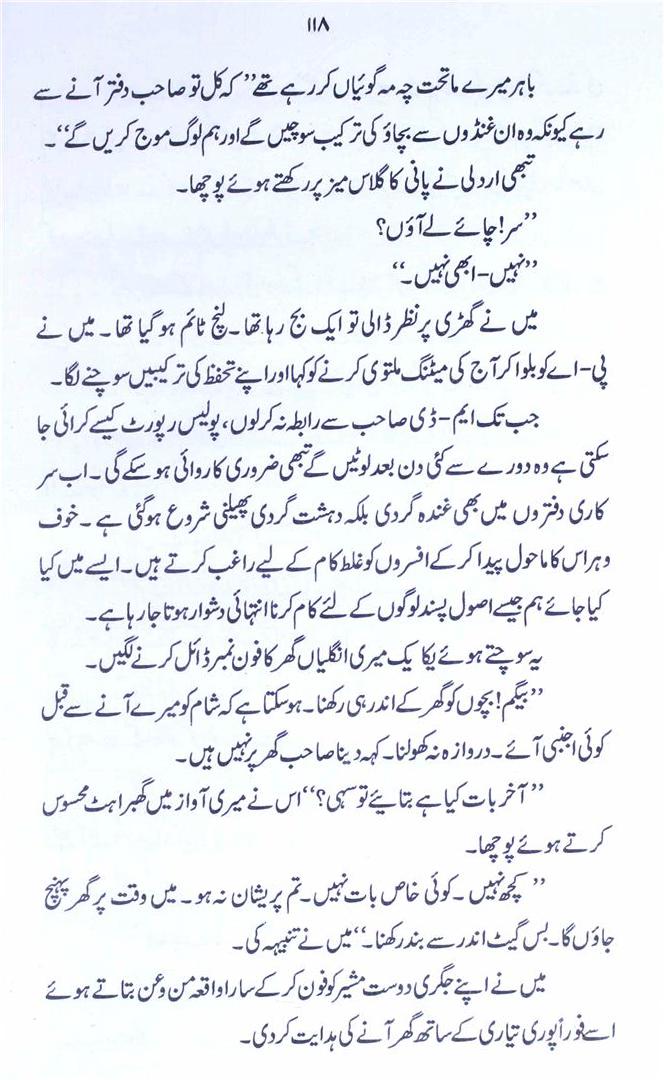 ۱۱۸
باہر میرے ماتحت چہ مہ گوئیاں کر رہے تھے ”کہ کل تو صاحب دفتر آنے سے
رہے کیونکہ وہ ان غنڈوں سے بچاؤ کی ترکیب سوچیں گے اور ہم لوگ موج کریں گے“۔
تبھی اردلی نے پانی کا گلاس میز پر رکھتے ہوئے پوچھا۔
”سر! چائے لے آؤں؟
”نہیں-ابھی نہیں۔“
میں نے گھڑی پر نظر ڈالی تو ایک بج رہا تھا۔ لنچ ٹائم ہو گیا تھا۔ میں نے
پی-اے کو بلوا کر آج کی میٹنگ ملتوی کرنے کو کہا اور اپنے تحفظ کی ترکیبیں سوچنے لگا۔
جب تک ایم-ڈی صاحب سے رابطہ نہ کرلوں، پولیس رپورٹ کیسے کرائی جا
سکتی ہے وہ دورے سے کئی دن بعد لوٹیں گے تبھی ضروری کاروائی ہو سکے گی۔ اب سر
کاری دفتروں میں بھی غنڈہ گردی بلکہ دہشت گردی پھیلنی شروع ہوگئی ہے۔ خوف
وہراس کا ماحول پیدا کر کے افسروں کو غلط کام کے لیے راغب کرتے ہیں۔ ایسے میں کیا
کیا جائے ہم جیسے اصول پسند لوگوں کے لئے کام کرنا انتہائی دشوار ہوتا جا رہا ہے۔
یہ سوچتے ہوئے یکا یک میری انگلیاں گھر کا فون نمبر ڈائل کرنے لگیں۔
”بیگم! بچوں کو گھر کے اندر ہی رکھنا۔ ہو سکتا ہے کہ شام کو میرے آنے سے قبل
کوئی اجنبی آئے۔ دروازہ نہ کھولنا۔ کہہ دینا صاحب گھر پر نہیں ہیں۔
”آخر بات کیا ہے بتایئے تو سہی؟“ اس نے میری آواز میں گھبراہٹ محسوس
کرتے ہوئے پوچھا۔
”کچھ نہیں۔ کوئی خاص بات نہیں۔ تم پریشان نہ ہو۔ میں وقت پر گھر پہنچ
جاؤں گا۔ بس گیٹ اندر سے بند رکھنا۔“ میں نے تنبیہہ کی۔
میں نے اپنے جگری دوست مشیر کو فون کر کے سارا واقعہ من وعن بتاتے ہوئے
اسے فوراً پوری تیاری کے ساتھ گھر آنے کی ہدایت کر دی۔